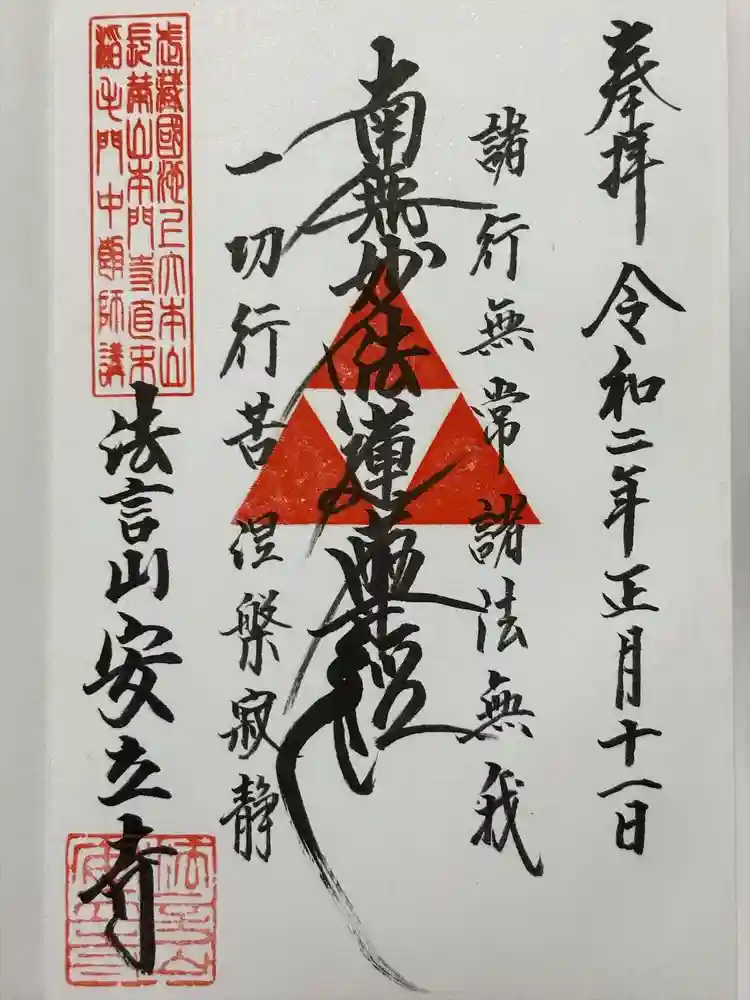 奉拝 令和二年正月十一日
諸行無常 諸法無我
南無妙法蓮華経
一切行苦 涅槃寂静
武蔵國池上大本山
長榮山本門寺直末
稲毛門中 師講
法言山 安立寺